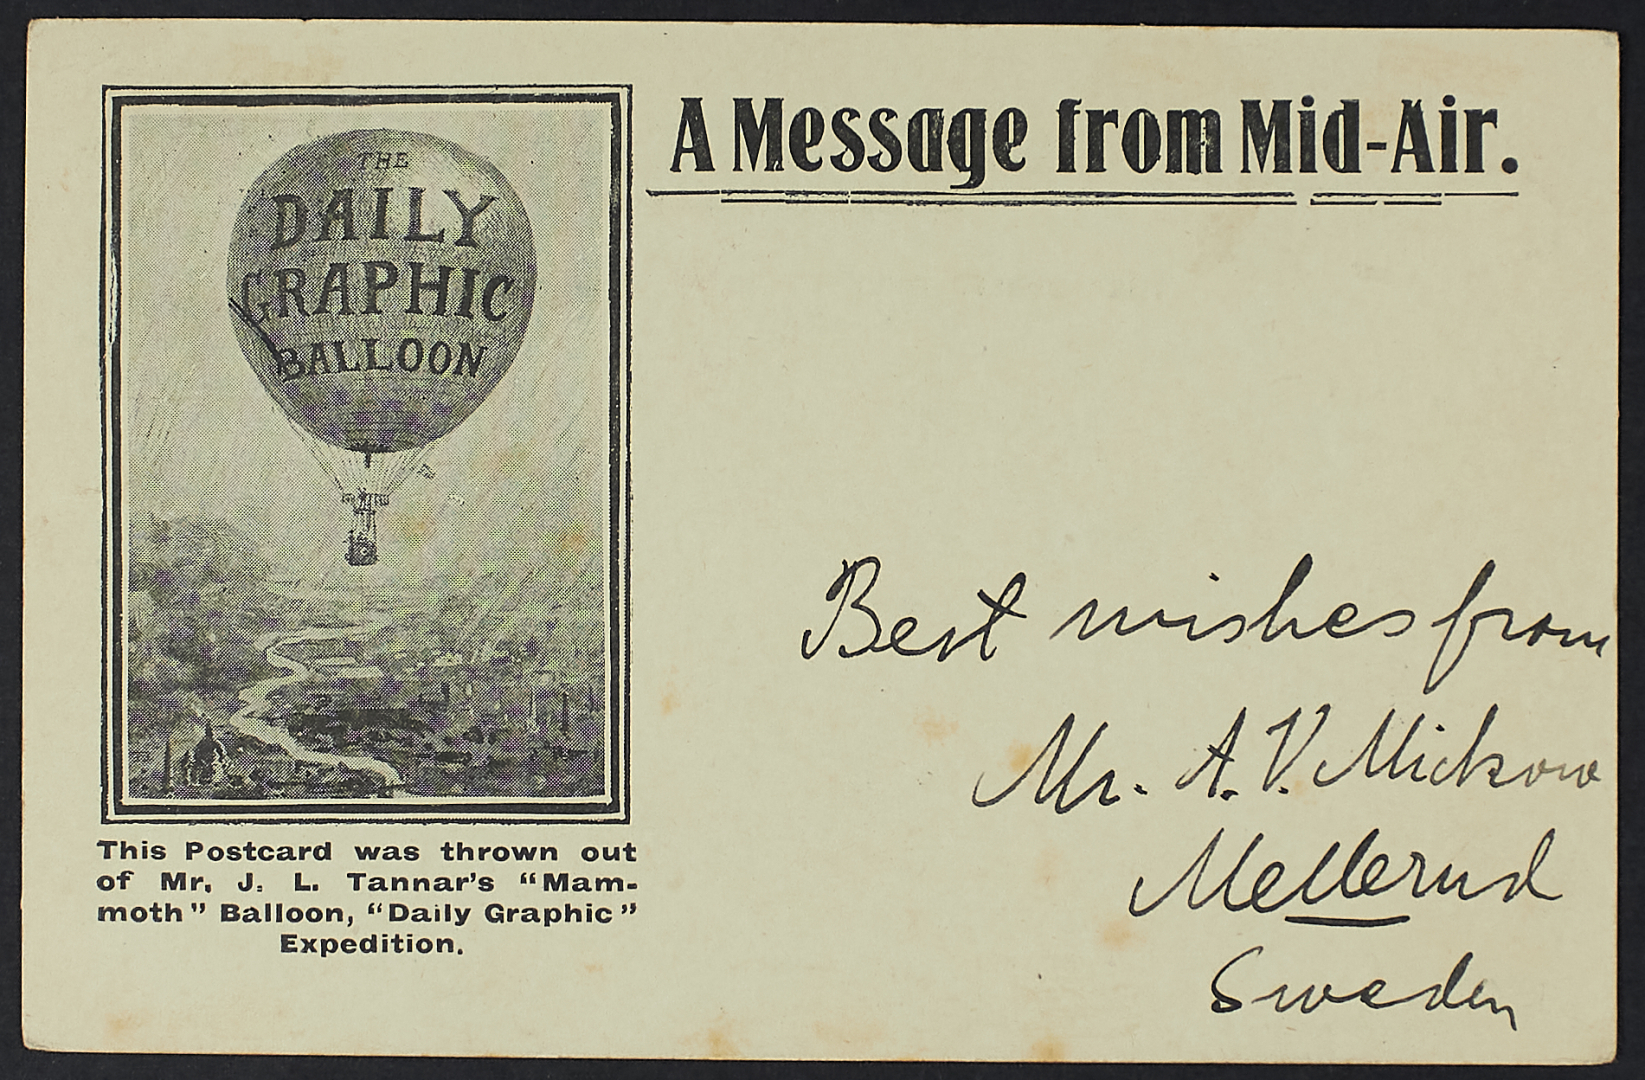 THE
DAILY
GRAPHIC
BALLOON
A Message from Mid-Air.
This Postcard was thrown out
of Mr. J. L. Tannar's “Mam-
moth” Balloon, “Daily Graphic”
Expedition.
Best wishes from
Mr. A. V. Mickow
Mellerud
Sweden